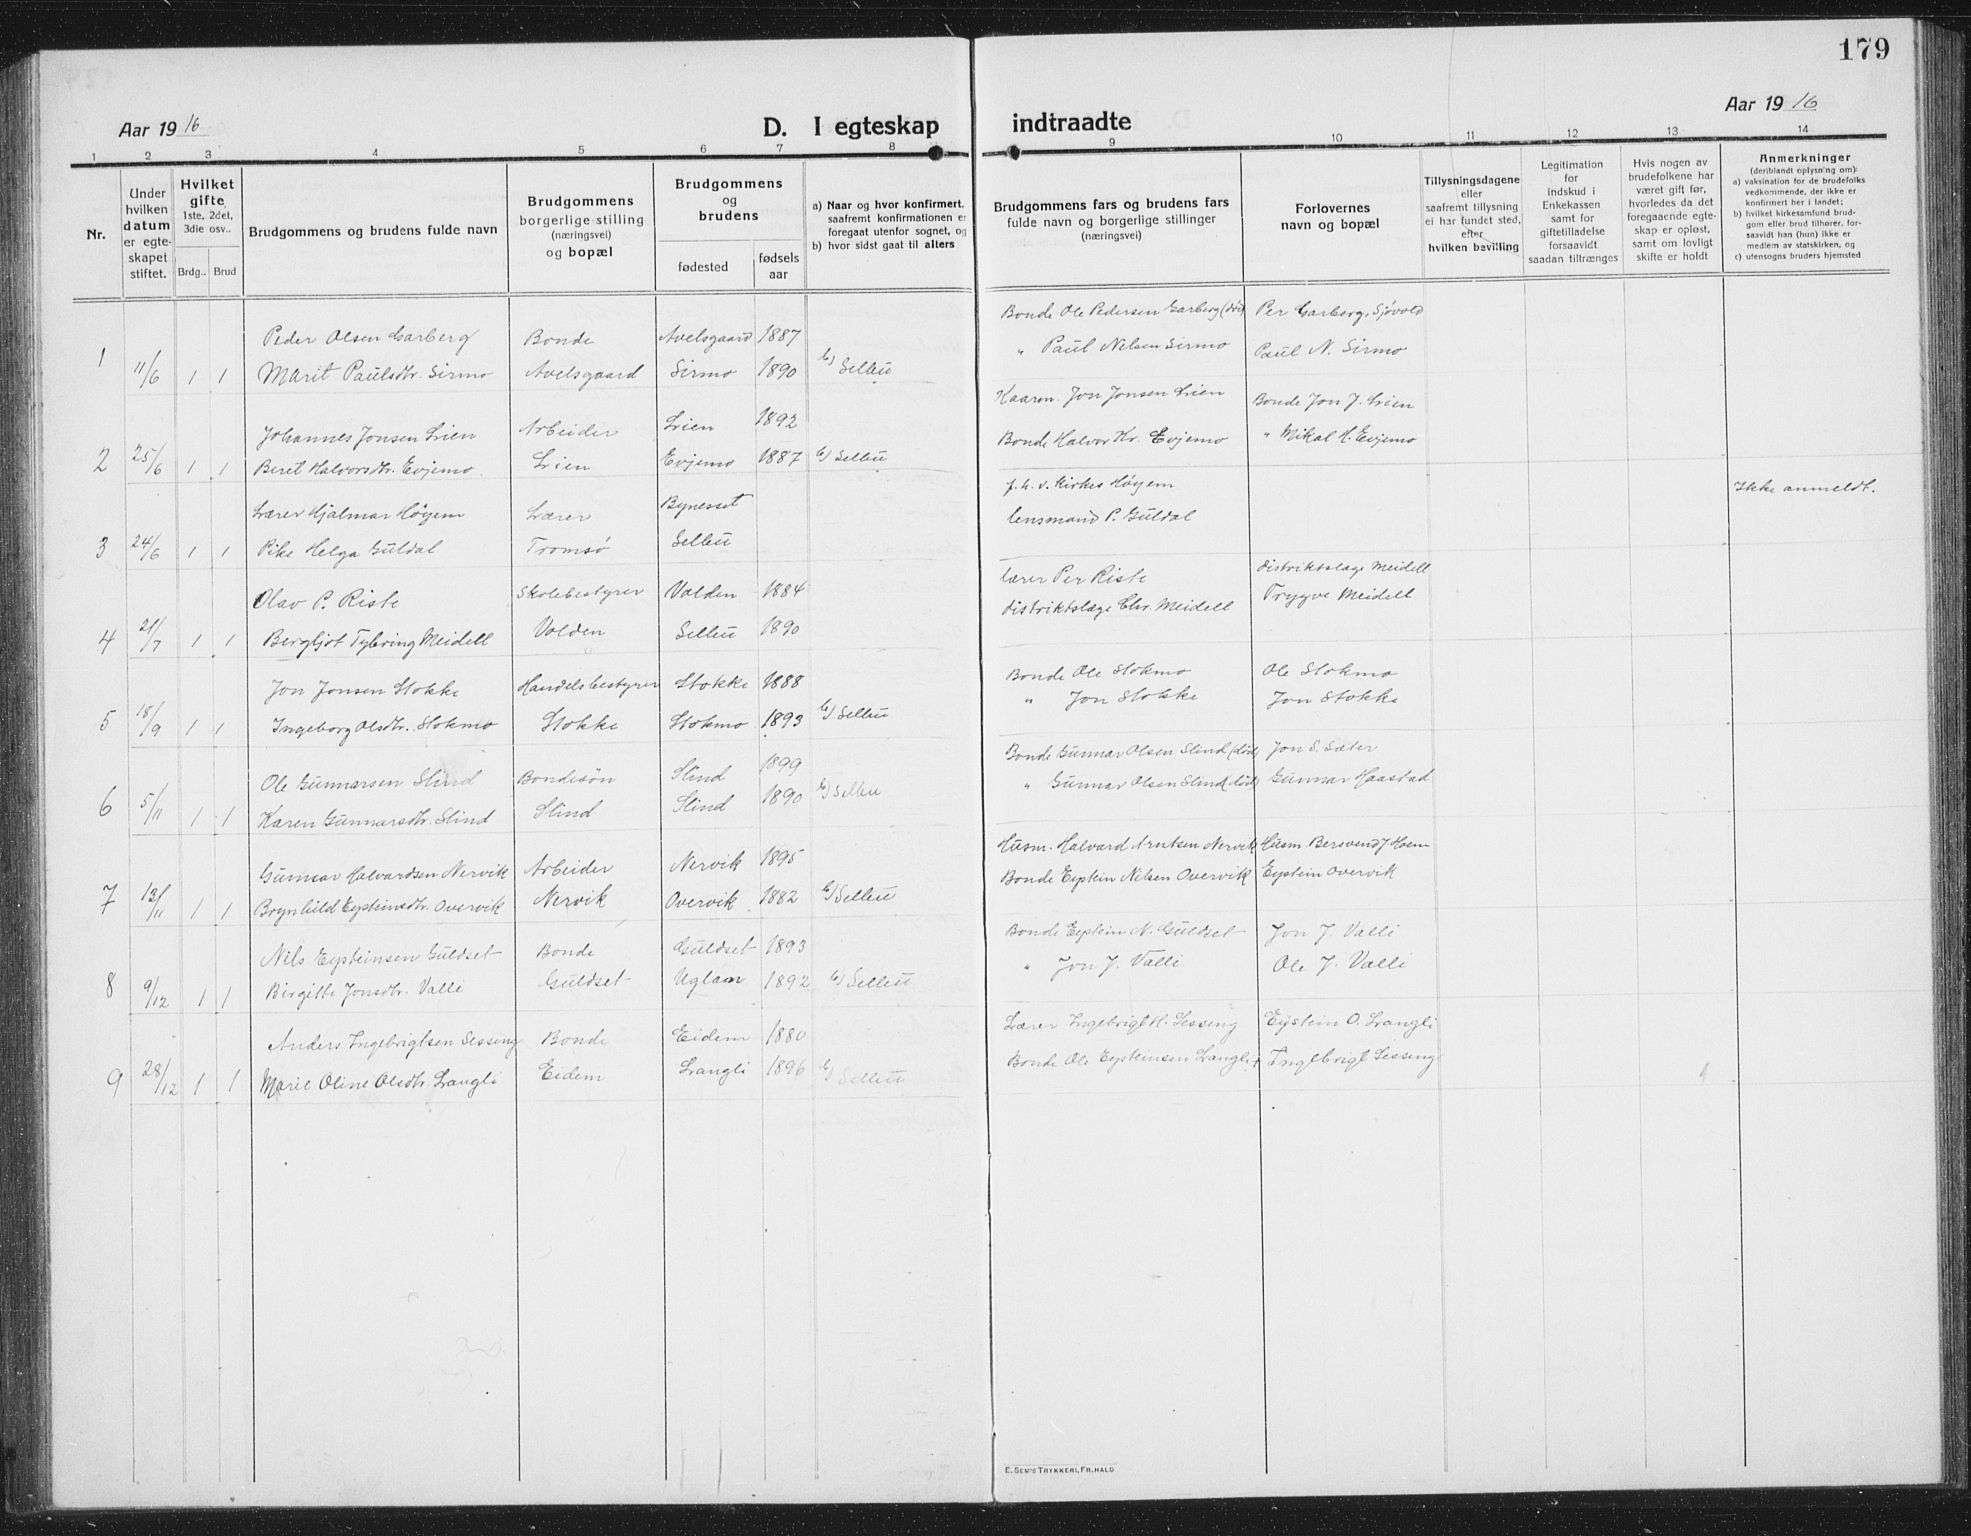 179
Aar 19 16
D. I egteskap indtraadte
Aar 19 16
1 2 3 4 5 6 7 8 9 10 11 12 13 14
Nr.
Under hvilken datum er egte-skapet stiftet.
Hvilket gifte 1ste, 2det, 3die osv..
Brdg.. Brud
Brudgommens og brudens fulde navn
Brudgommens borgerlige stilling (næringsvei) og bopæl
Brudgommens og brudens
fødested
fødsels aar
a) Naar og hvor konfirmert,
saafremt konfirmationen er
foregaat utenfor sognet, og
b) hvor sidst gaat til alters
Brudgommens fars og brudens fars
fulde navn og borgerlige stillinger
(næringsvei)
Forlovernes
navn og bopæl
Tillysningsdagene
eller
saafremt tillysning
ei har fundet sted,
efter
hvilken bevilling
Legitimation
for
indskud i
Enkekassen
samt for
giftetilladelse
forsaavidt
saadan tiltrænges
Hvis nogen av
brudefolkene har
været gift før,
hvorledes da det
foregaaende egte-
skap er opløst,
samt om lovligt
skifte er holdt
Anmerkninger
(deriblandt oplysning om):
a) vaksination for de brudefolks
vedkommende, der ikke er
konfirmert her i landet;
b) hvilket kirkesamfund brud-
gom eller brud tilhører, for-
saavidt han (hun) ikke er
medlem av statskirken, og
c) utensogns bruders hjemsted
Peder Olsen Garberg Bonde Avelsgaard 1887 Bonde Ole Pedersen Garberg (død) Per Garberg, Sjøvold
1 11/6 1 1 Marit Paulsdtr. Sirmo Avelsgaard Sirmo 1890 b) Selbu " Paul Nelsen Sirmo Paul N. Sirmo
Johannes Jonsen Lien Arbeider Lien 1892 Kaarm. Jon Jonsen Lien Bonde Jon J. Lien
2 25/6 1 1 Beret Halvorsdtr. Evjemo Lien Evjemo 1887 b) Selbu Bonde Halvor Kr. Evjemo " Mikal H. Evjemo
Lærer Hjalmar Høyem Lærer Bynesset f.h.v. Kirkes Høyem Ikke anmeldt.
3 24/6 1 1 Pike Helga Guldal Tromsø Selbu lensmand P. Guldal
Olav P. Riste Skolebestyrer Volden 1884 lærer Per Riste distriktslæge Meidell
4 21/7 1 1 Bergljot Tybring Meidell Volden Selbu 1890 distriktslæge Chr. Meidell Trygve Meidell
Jon Jonsen Stokke Handelsbestyrer Stokke 1888 Bonde Ole Stokmo Ole Stokmo
5 18/9 1 1 Ingeborg Olsdtr. Stokmo Stokke Stokmo 1893 b) Selbu " Jon Stokke Jon Stokke
Ole Gunnarsen Slind Bondesøn Slind 1899 Bonde Gunnar Olsen Slind (død) Jon S. Sæter
6 5/11 1 1 Karen Gunnarsdtr. Slind Slind Slind 1890 b) Selbu " Gunnar Olsen Slind (død) Gunnar Haastad
Gunnar Halvardsen Nervik Arbeider Nervik 1895 Husm. Halvard Arntsen Nervik Husm Bersvend J Hoem
7 12/11 1 1 Brynhild Eysteinsdtr. Overvik Nervik Overvik 1882 b) Selbu Bonde Eystein Nilsen Overvik Eystein Overvik
Nils Eysteinsen Guldset Bonde Guldset 1893 Bonde Eystein N. Guldset Jon J. Valli
8 9/12 1 1 Birgitte Jonsdtr. Valli Guldset Uglan 1892 b) Selbu " Jon J. Valli Ole J. Valli
Anders Ingebrigtsen Sessing Bonde Eidem 1880 Lærer Ingebrigt H. Sessing Eystein O. Langli
9 28/12 1 1 Marie Oline Olsdtr. Langli Eidem Langli 1896 b) Selbu Bonde Ole Eysteinsen Langli + Ingebrigt Sessing
E. Sem's Trykkeri, Fr.hald